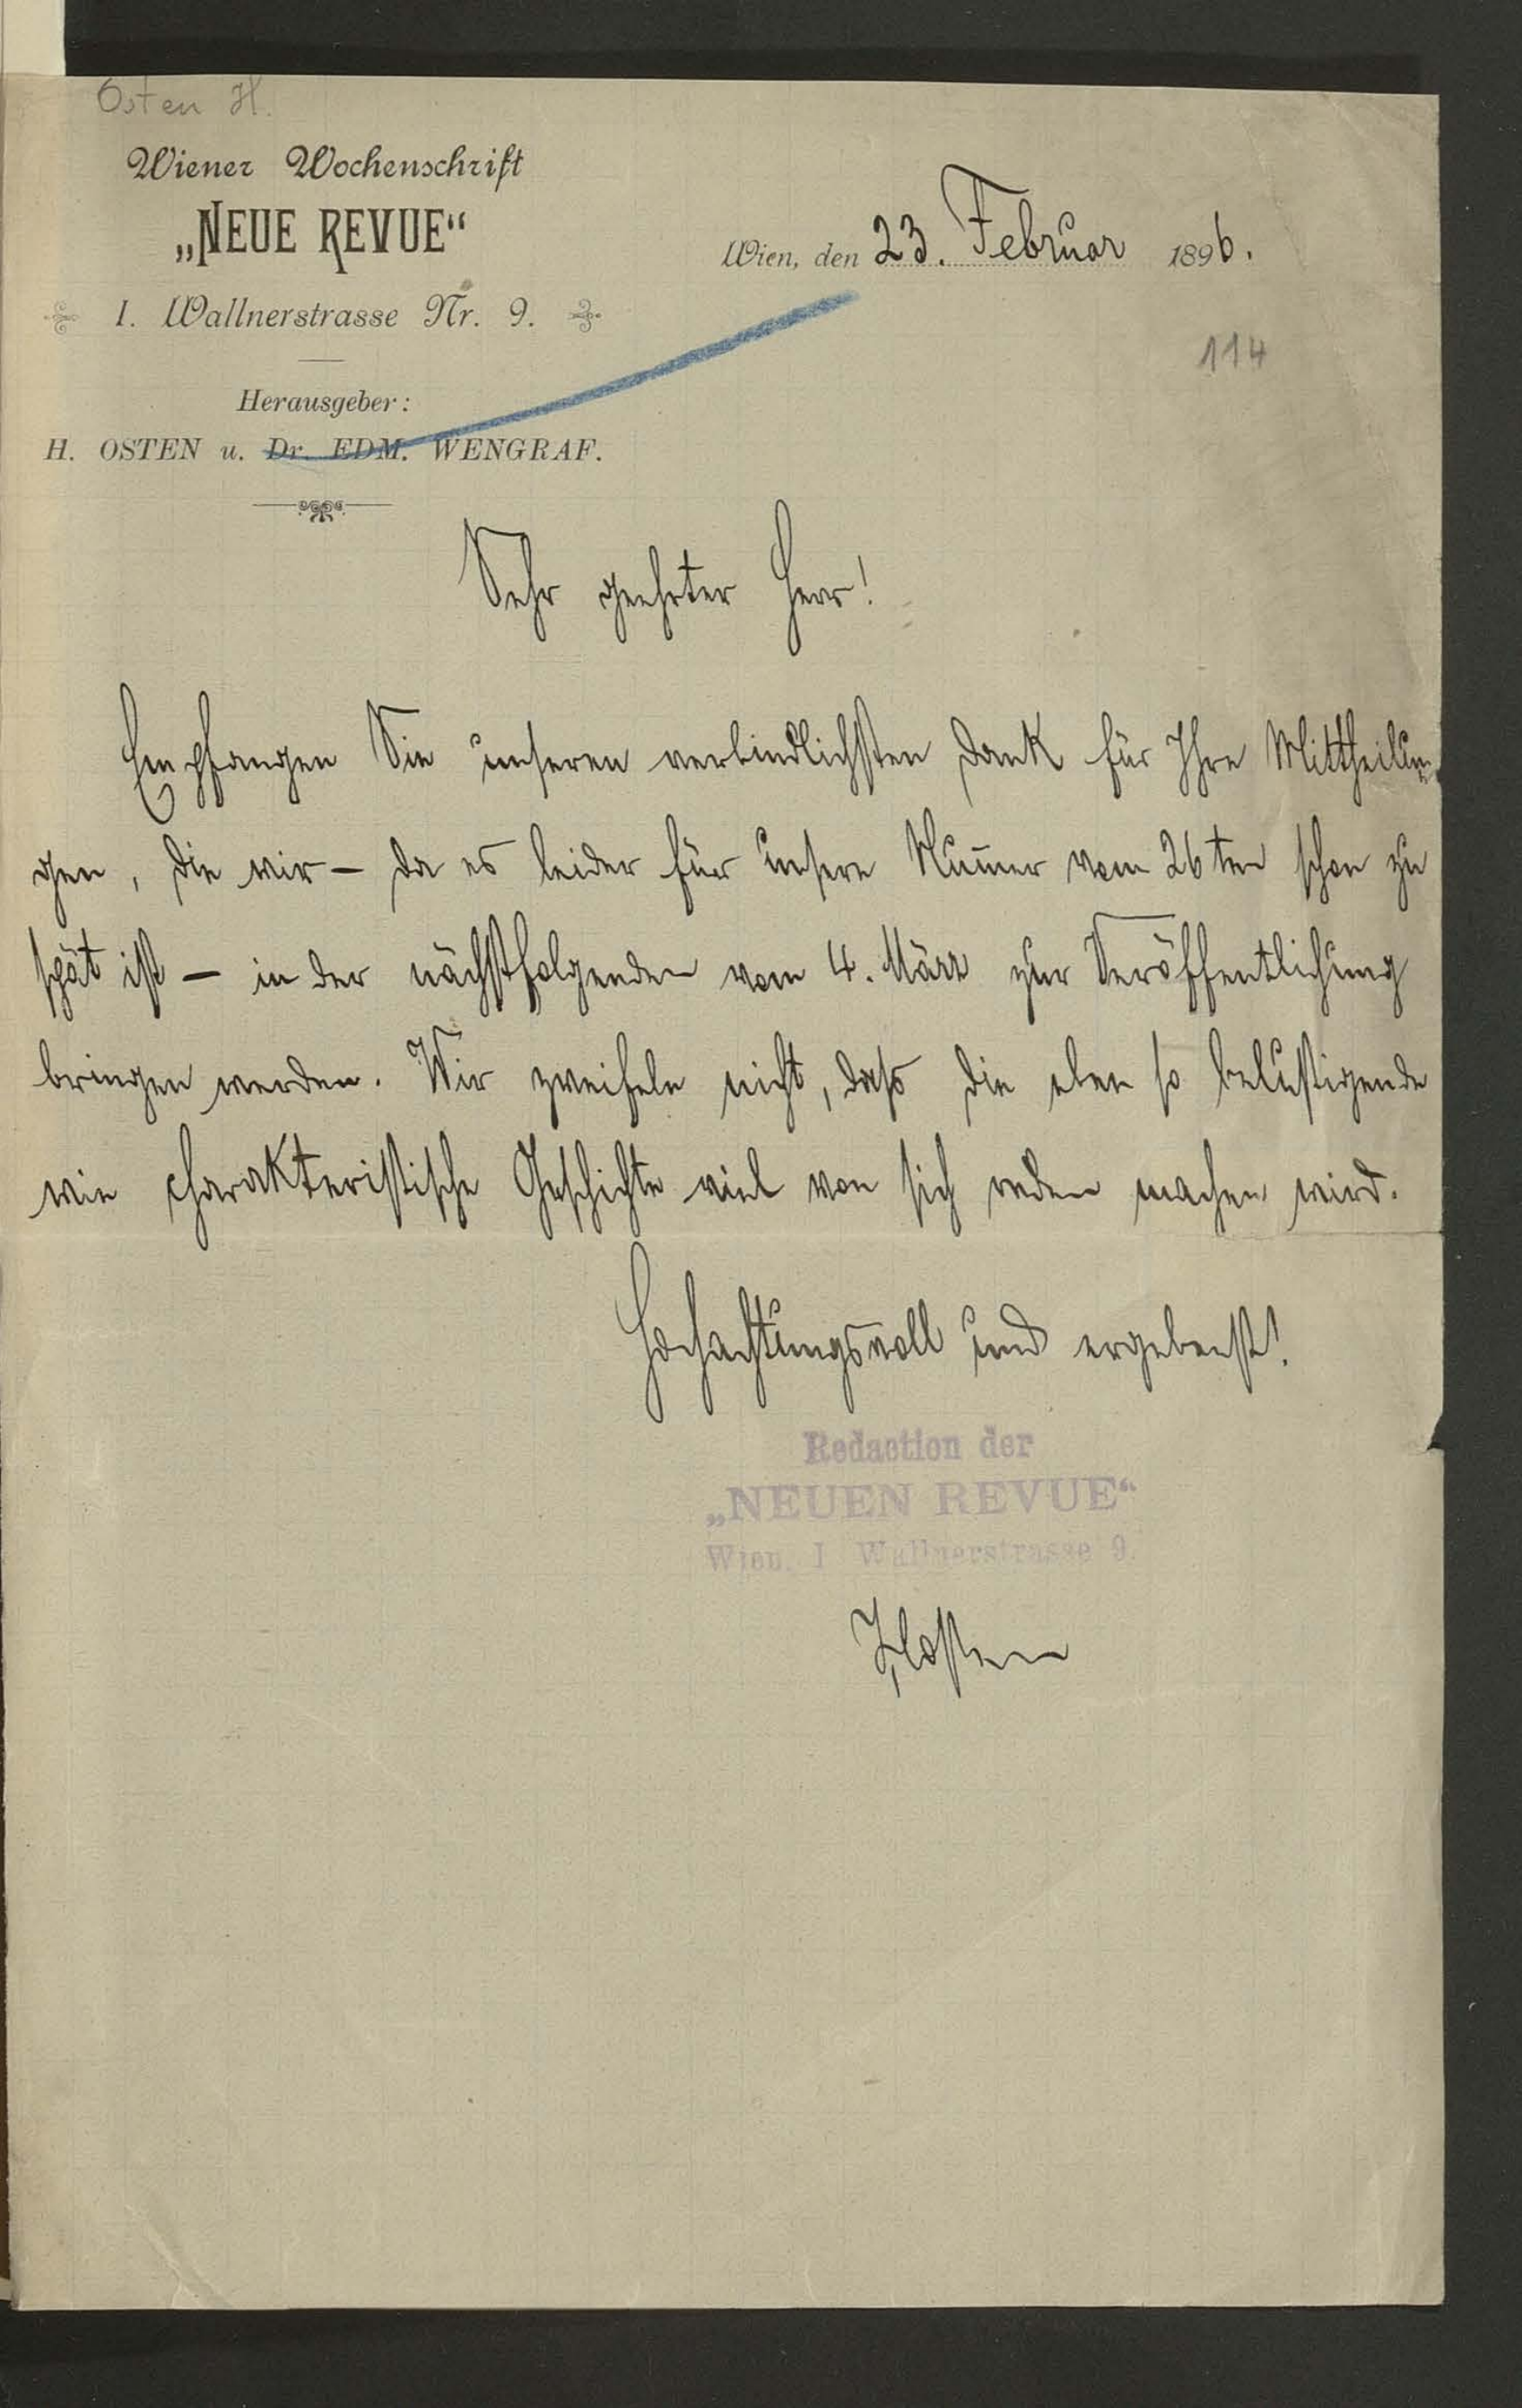 Osten H.
Wiener Wochenschrift
„NEUE REVUE“
Wien, den 23. Februar 1896.
I. Wallnerstrasse Nr. 9.
114
Herausgeber:
H. OSTEN u. Dr. EDM. WENGRAF.
Sehr geehrter Herr!
Empfangen Sie unseren verbindlichsten Dank für Ihre Mittheilun-
gen, die wir – da es leider für unsere Nummer vom 26ten schon zu
spät ist – in der nächstfolgenden vom 4. März zur Veröffentlichung
bringen werden. Wir zweifeln nicht, daß die eben so belustigende
wie charakteristische Geschichte viel von sich reden machen wird.
Hochachtungsvoll und ergebenst!
Redaction der
„NEUEN REVUE“
Wien, I Wallnerstrasse 9.
HOsten